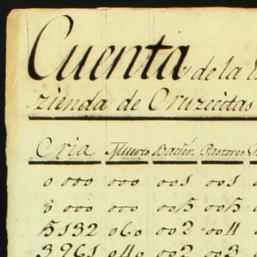 Cuenta de la
zienda de Cruzecitas
Cria Muerto Bacun. Pastores
0 000 000 001 001
0 000 000 005 005
5132 060 002 004
3961 040 002 003